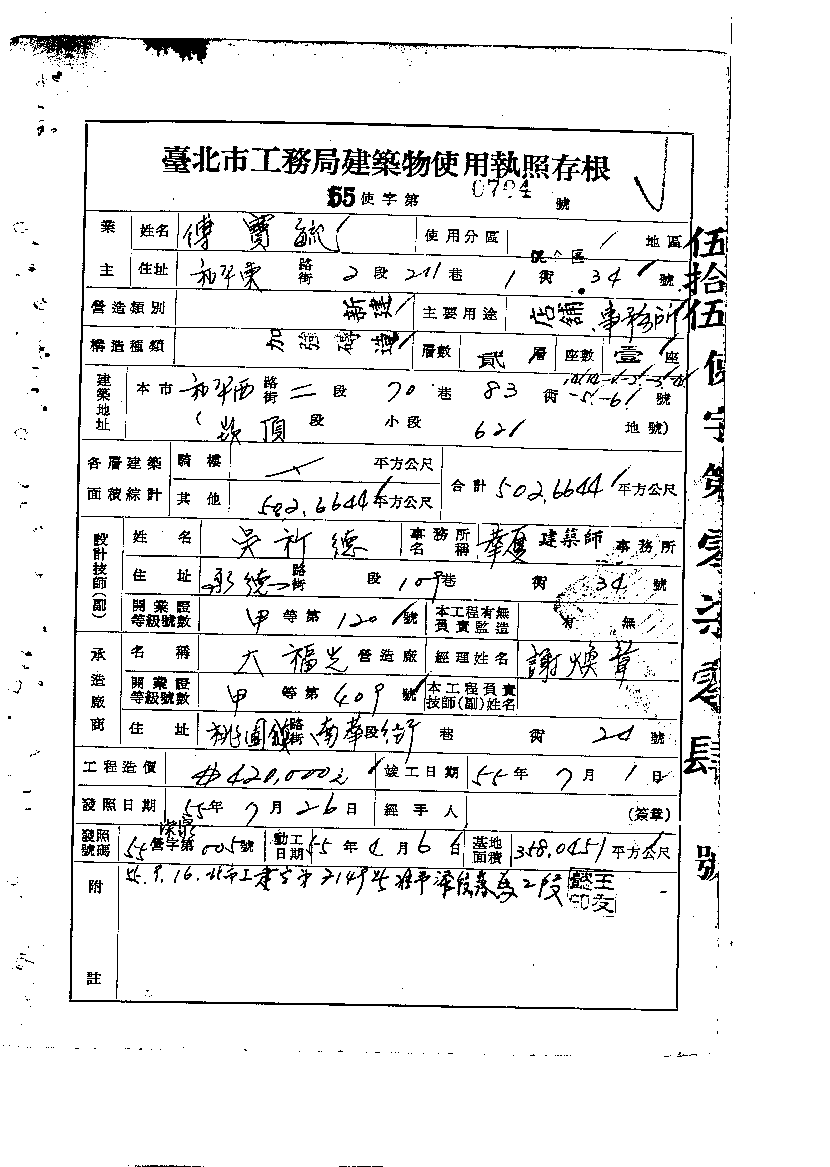 臺北市工務局建築物使用執照存根
55使字第 0704 號
業主 姓名 傅寶毓 使用分區 地區
住址 和平東 路街 2段 211巷 1街 34號
營造類別 新建 主要用途 店舖 事務所
構造種類 加強磚造 層數 貳層 座數 壹座
建築地址 本市 和平西 路街 二段 70巷 83街 號
( 崁頂 段 小段 621 地號)
各層建築面積總計 騎樓 平方公尺 合計 502.6644 平方公尺
其他 502.6644 平方公尺
設計技師(副) 姓名 吳祈德 事務所名稱 華廈 建築師 事務所
住址 承德 路街 段 109巷 街 34號
開業證等級號數 甲等第 120 號 本工程有無負責監造 有 無
承造廠商 名稱 大福光 營造廠 經理姓名 謝煥章
開業證等級號數 甲等第 409 號 本工程負責技師(副)姓名
住址 桃園鎮 路街 南華 段 街 巷 街 24號
工程造價 #420,000元 竣工日期 55年7月1日
發照日期 55年7月26日 經手人 (簽章)
發照號碼 55營字第005號 動工日期 55年4月6日 基地面積 358.0451 平方公尺
附註 9.16.北市工建字第2149號
王友懿印
伍拾伍使字第零柒零肆號